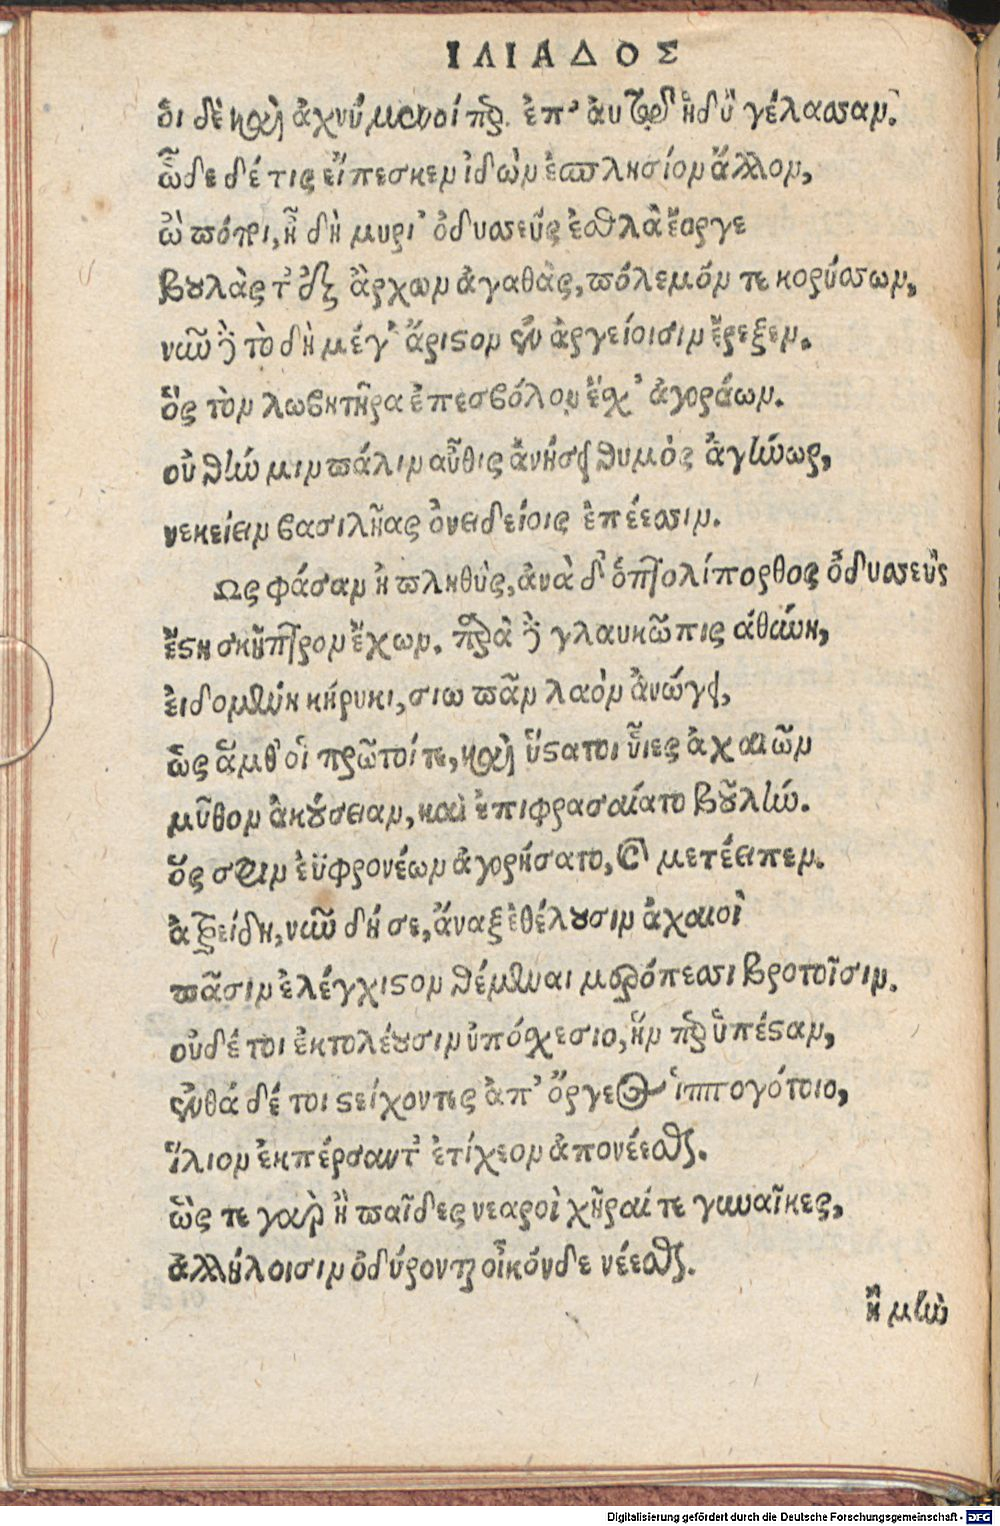 ΙΛΙΑΔΟΣ
ὃι δὲ καὶ ἀχνύμενοί περ ἐπ' ἀυτῷ ἡδὺ γέλασσαν.
ὧδε δέ τις εἴπεσκεν ἰδὼν ἐς πλησίον ἄλλον,
ὢ πόποι, ἦ δὴ μυρί' ὀδυσσεὺς ἐσθλὰ ἔοργε
βουλάς τ' ἐξάρχων ἀγαθὰς, πόλεμόν τε κορύσσων,
νῦν δὲ τὸ δὴ μέγ' ἄριστον ἐν ἀργείοισιν ἔρεξεν.
ὃς τὸν λωβητῆρα ἐπεσβόλον ἔσχ' ἀγοράων.
οὐ θήν μιν πάλιν αὖθις ἀνήσει θυμὸς ἀγήνωρ,
νεικείειν βασιλῆας ὀνειδείοις ἐπέεσσιν.
Ως φάσαν ἡ πληθὺς, ἀνὰ δ' ὁ πτολίπορθος ὀδυσσεὺς
ἔστη σκῆπτρον ἔχων. παρὰ δὲ γλαυκῶπις ἀθήνη,
εἰδομένη κήρυκι, σιωπᾶν λαὸν ἀνώγει,
ὡς ἅμα θ' οἱ πρῶτοί τε, καὶ ὕστατοι υἷες ἀχαιῶν
μῦθον ἀκούσειαν, καὶ ἐπιφρασαίατο βουλήν.
ὅς σφιν ἐϋφρονέων ἀγορήσατο, καὶ μετέειπεν.
ἀτρείδη, νῦν δή σε, ἄναξ ἐθέλουσιν ἀχαιοὶ
πᾶσιν ἐλέγχιστον θέμεναι μερόπεσσι βροτοῖσιν.
οὐδέ τοι ἐκτελέουσιν ὑπόσχεσιν, ἥν περ ὑπέσταν,
ἐνθάδέ τοι στείχοντες ἀπ' ἄργεος ἱπποβότοιο,
ἴλιον ἐκπέρσαντ' εὐτείχεον ἀπονέεσθαι.
ὥς τε γὰρ ἢ παῖδες νεαροὶ χῆραί τε γυναῖκες,
ἀλλήλοισιν ὀδύρονται οἶκόνδε νέεσθαι.
ἢ μὴν
Digitalisierung gefördert durch die Deutsche Forschungsgemeinschaft - DFG